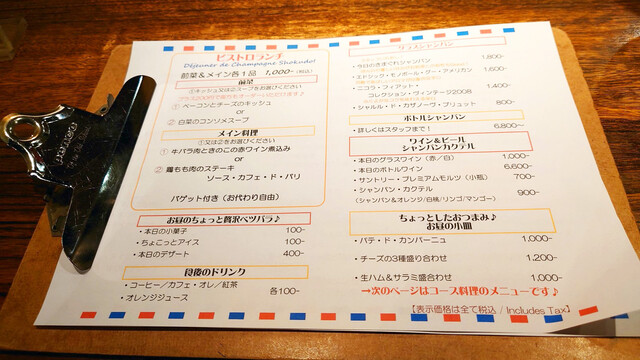 ビストロランチ
Déjeuner de Champagne Shokudo!
前菜&メイン各1品 1,000-(税込)
前菜
①キッシュ又は②スープをお選びください
① ベーコンとチーズのキッシュ
or
② 白菜のコンソメスープ
メイン料理
①又は②をお選びください
① 牛バラ肉ときのこの赤ワイン煮込み
or
② 鶏もも肉のステーキ
ソース・カフェ・ド・パリ
バゲット付き(お代わり自由)
お昼のちょっと贅沢ベツバラ♪
・本日の小菓子 100-
・ちょこっとアイス 100-
・本日のデザート 400-
食後のドリンク
・コーヒー/カフェ・オレ/紅茶
各100-
・オレンジジュース
グラスシャンパン
・今日のきまぐれシャンパン 1,800-
・エドシック・モノポール・グー・アメリカン 1,600-
・ニコラ・フィアット・
コレクション・ヴィンテージ2008 1,400-
・シャルル・ド・カザノーヴ・ブリュット 800-
ボトルシャンパン
・詳しくはスタッフまで! 6,800~
ワイン&ビール
シャンパンカクテル
・本日のグラスワイン(赤/白) 1,000-
・本日のボトルワイン 6,600-
・サントリー・プレミアムモルツ(小瓶) 700-
・シャンパン・カクテル 900-
(シャンパン&オレンジ/白桃/リンゴ/マンゴー)
ちょっとしたおつまみ♪
お昼の小皿
・パテ・ド・カンパーニュ 1,000-
・チーズの3種盛り合わせ 1,200-
・生ハム&サラミ盛合わせ 1,000-
→次のページはコース料理のメニューです♪
【表示価格は全て税込 / Includes Tax】